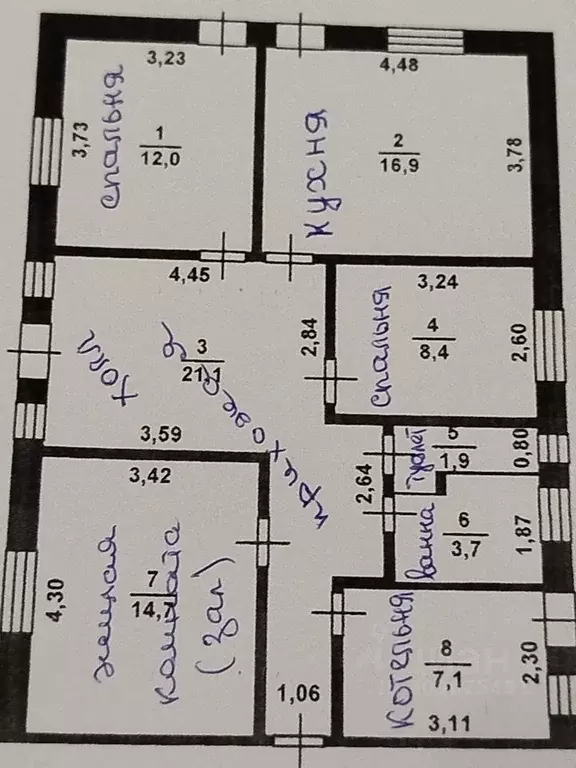 3,23
4,48
спальня
3,73
1
12,0
кухня
2
16,9
3,78
4,45
3,24
холл
3
21,1
2,84
спальня
4
8,4
2,60
3,59
3,42
2,64
туалет
5
1,9
0,80
ванна
6
3,7
1,87
4,30
жилая
комната
(зал)
7
14,7
1,06
котельня
8
7,1
2,30
3,11